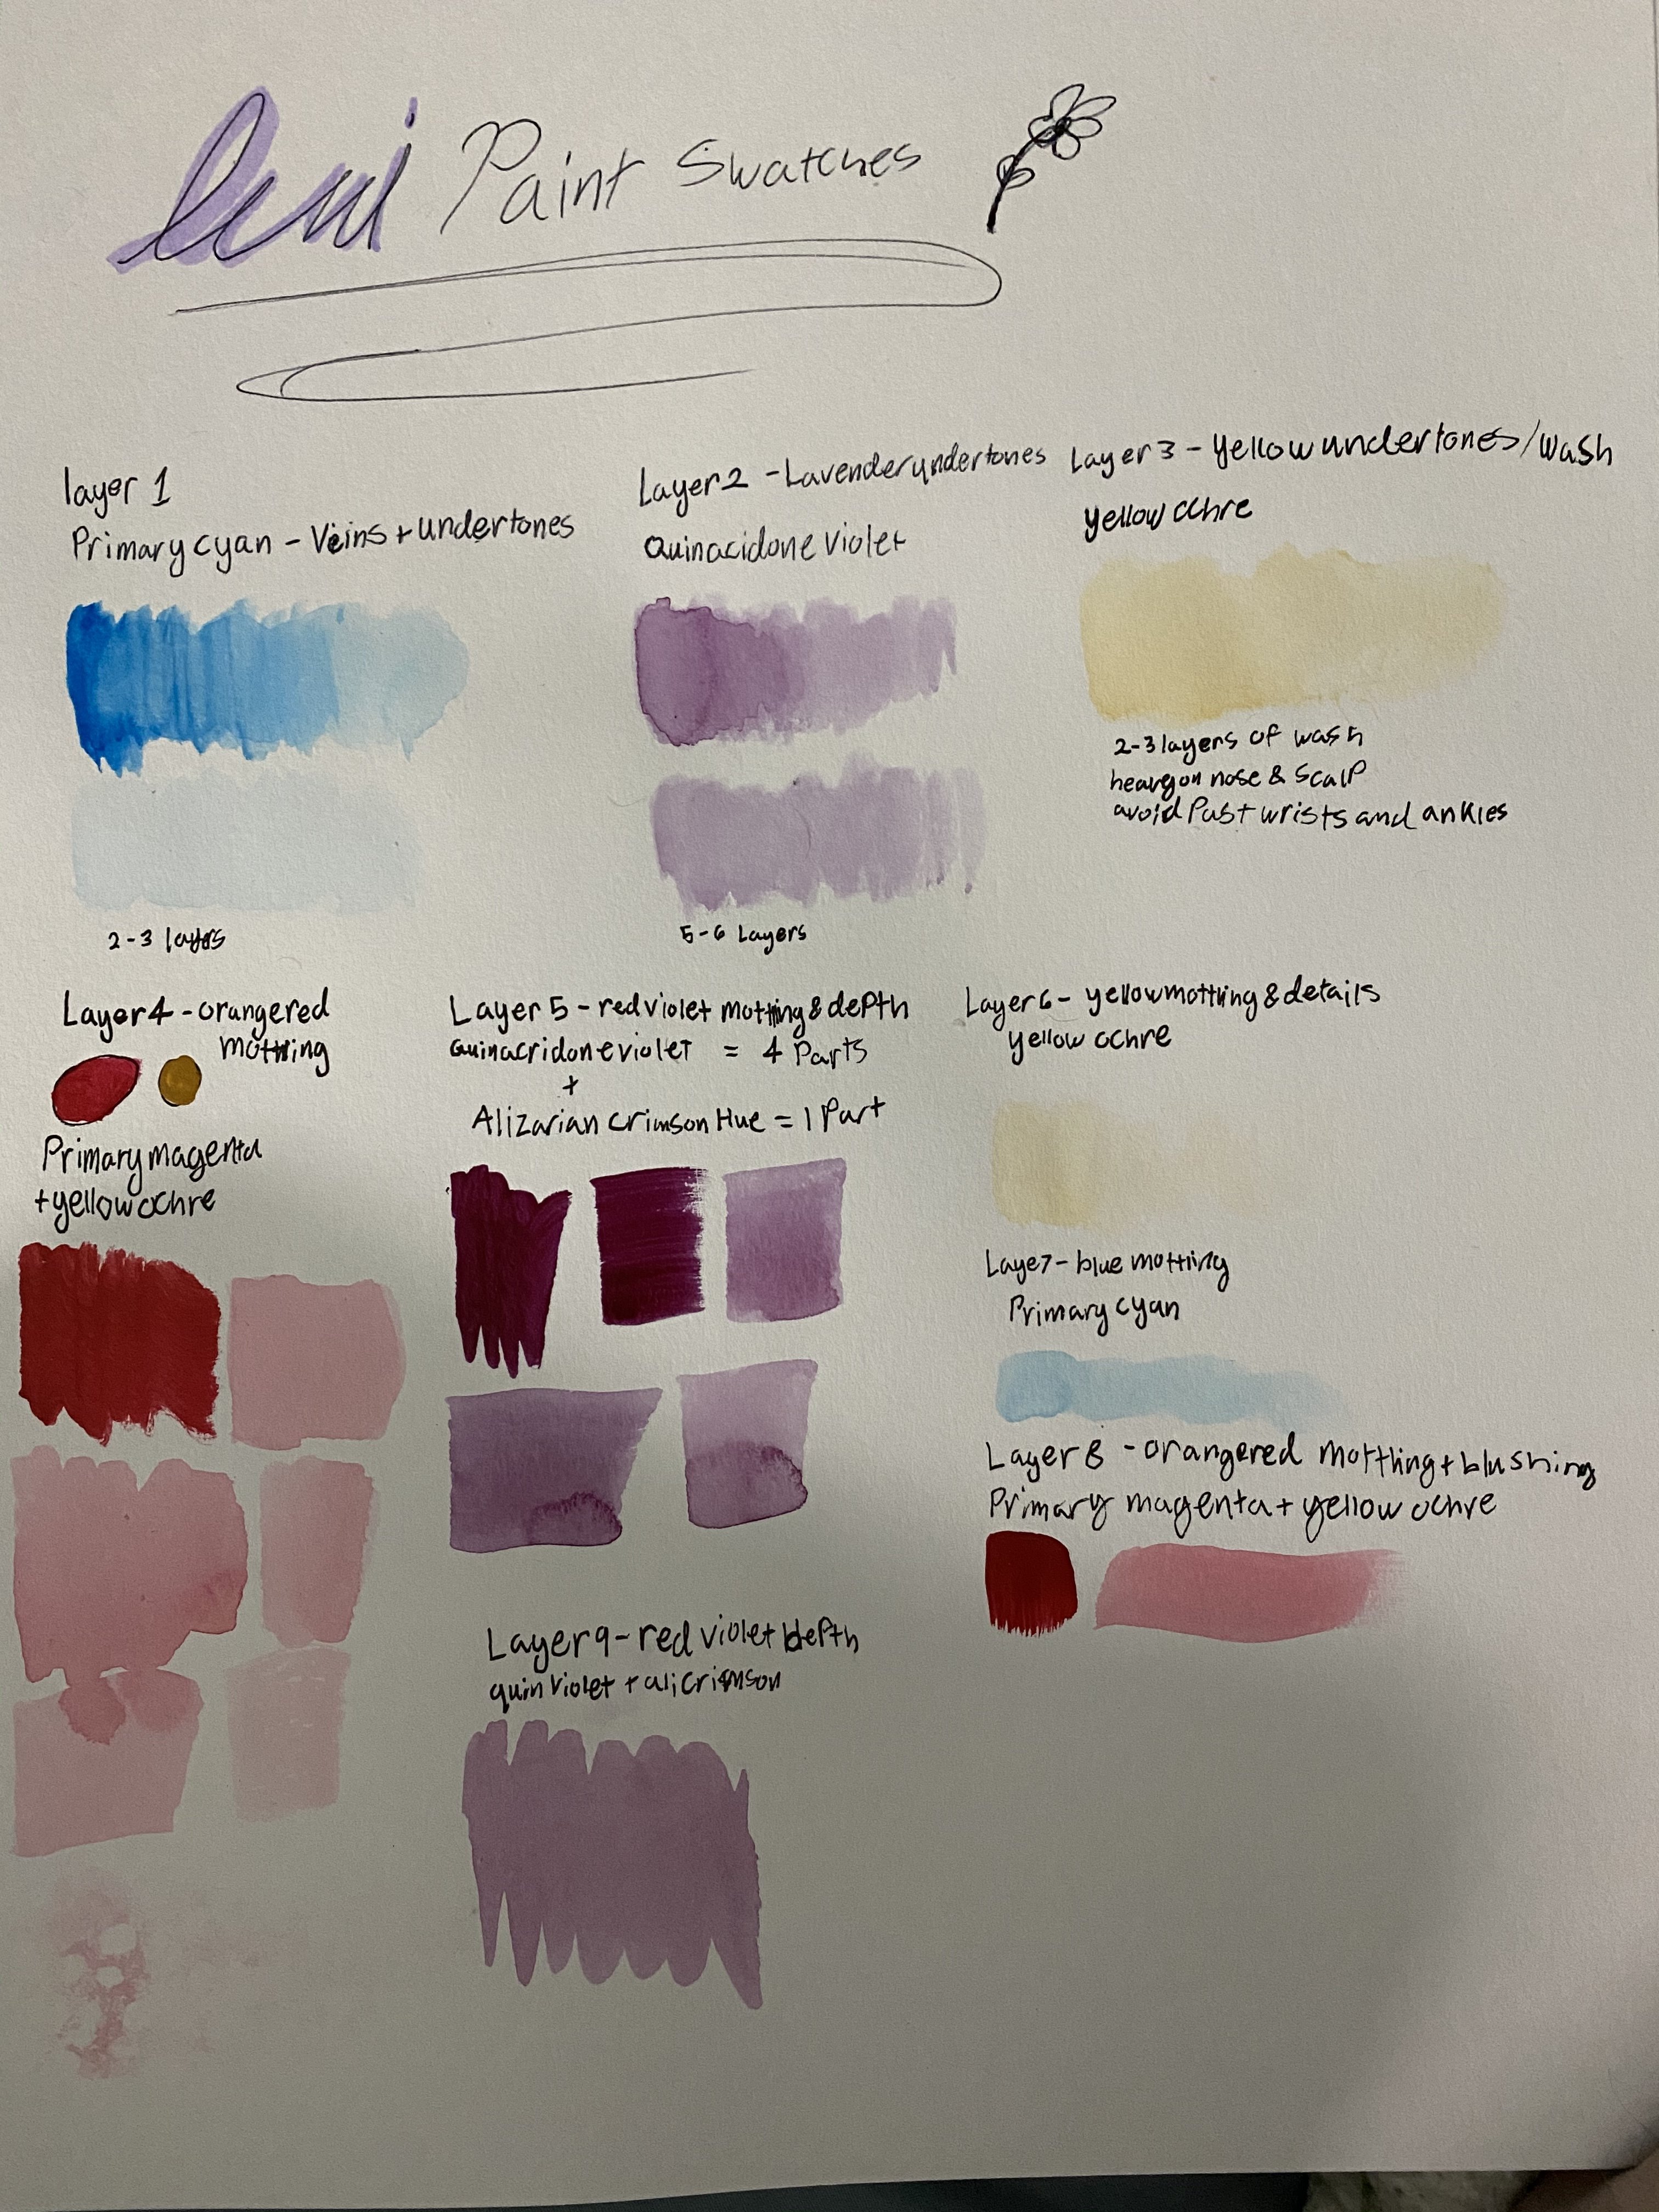 Leni Paint Swatches
layer 1
Primary cyan - Veins + undertones
2-3 layers
Layer 2 - Lavender undertones
Quinacidone Violet
5-6 Layers
Layer 3 - Yellow undertones/wash
yellow ochre
2-3 layers of wash
heavy on nose & scalp
avoid Past wrists and ankles
Layer 4 - orangered
mottling
Primary magenta
+ yellow ochre
Layer 5 - red violet mottling & depth
Quinacridone violet = 4 Parts
+
Alizarian Crimson Hue = 1 Part
Layer 6 - yellow mottling & details
yellow ochre
Laye 7 - blue mottling
Primary cyan
Layer 8 - orangered mottling + blushing
Primary magenta + yellow ochre
Layer 9 - red violet depth
quin violet + ali crimson